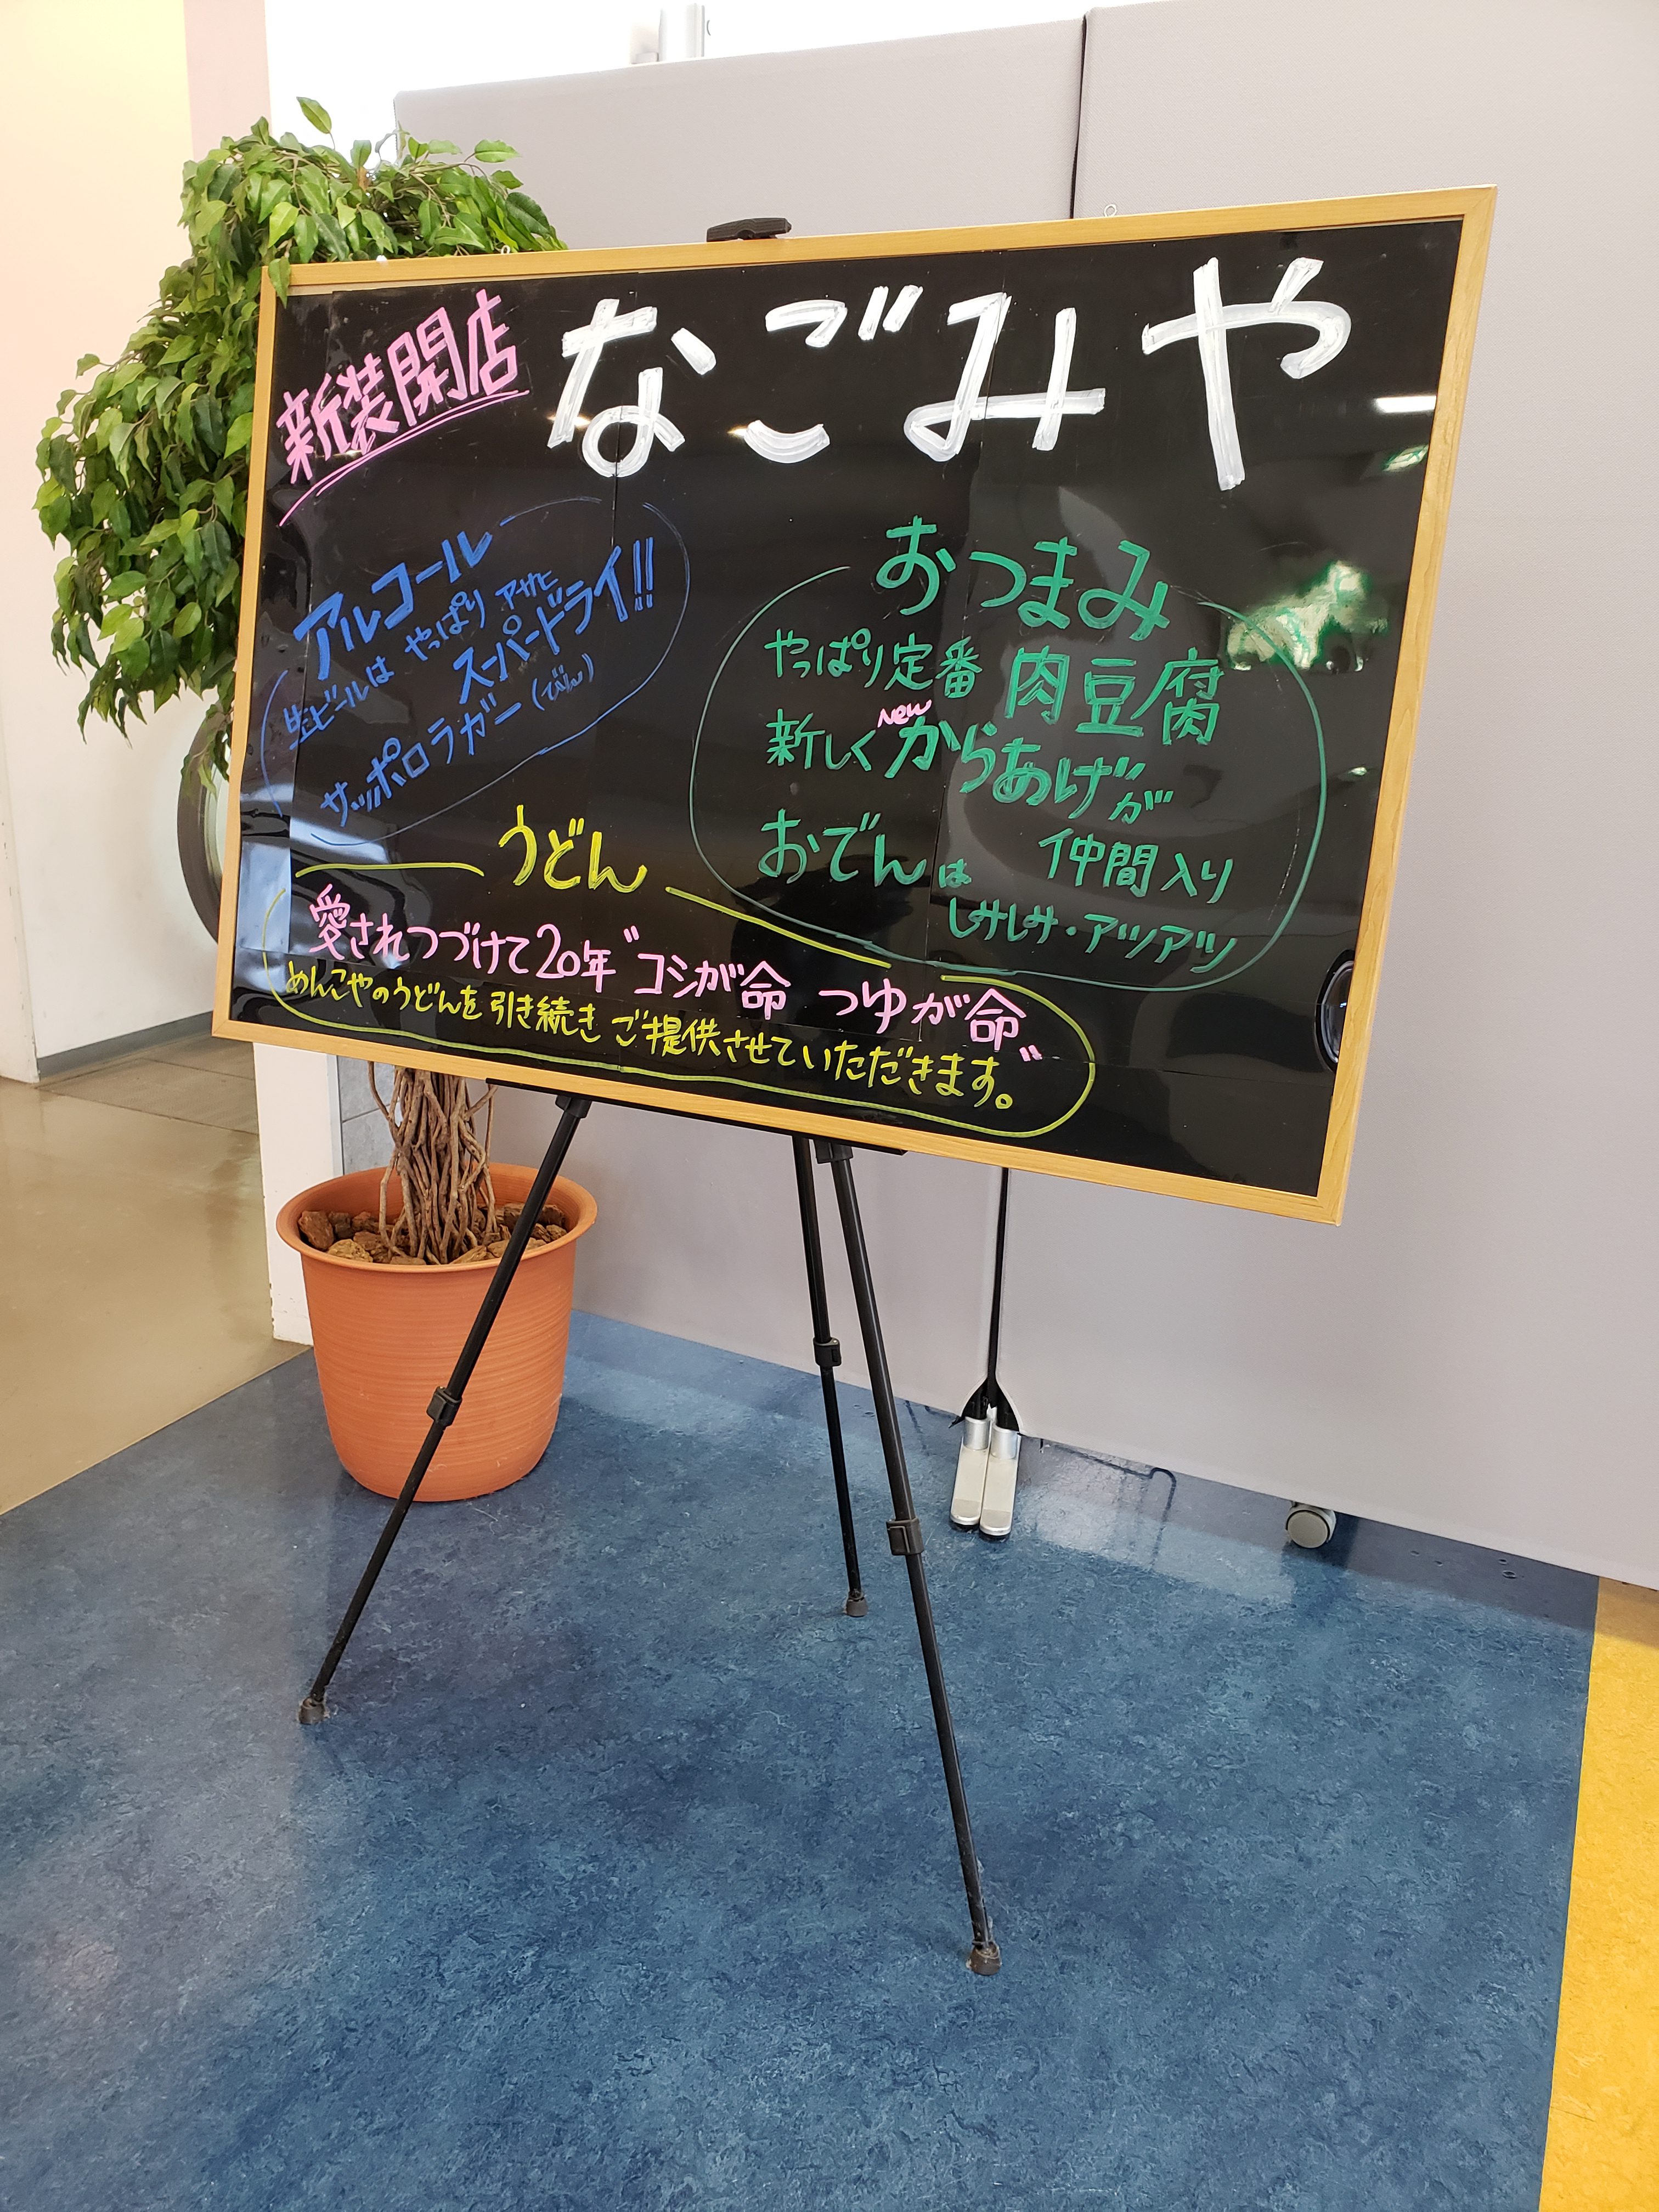 新装開店
なごみや
アルコール
生ビールは やっぱり アサヒ
スーパードライ!!
サッポロラガー(びん)
おつまみ
やっぱり定番 肉豆腐
new
新しく からあげが
仲間入り
おでんは
しみしみ・アツアツ
うどん
愛されつづけて20年"コシが命 つゆが命"
めんこやのうどんを引き続き ご提供させていただきます。